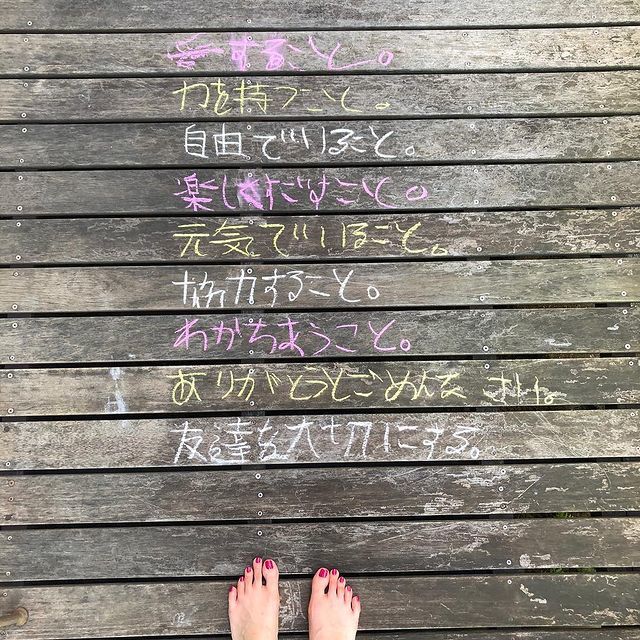 愛すること。
力を持つこと。
自由でいること。
楽しくすごすこと。
元気でいること。
協力すること。
わかちあうこと。
ありがとうとごめんな さいね
友達を大切にする。